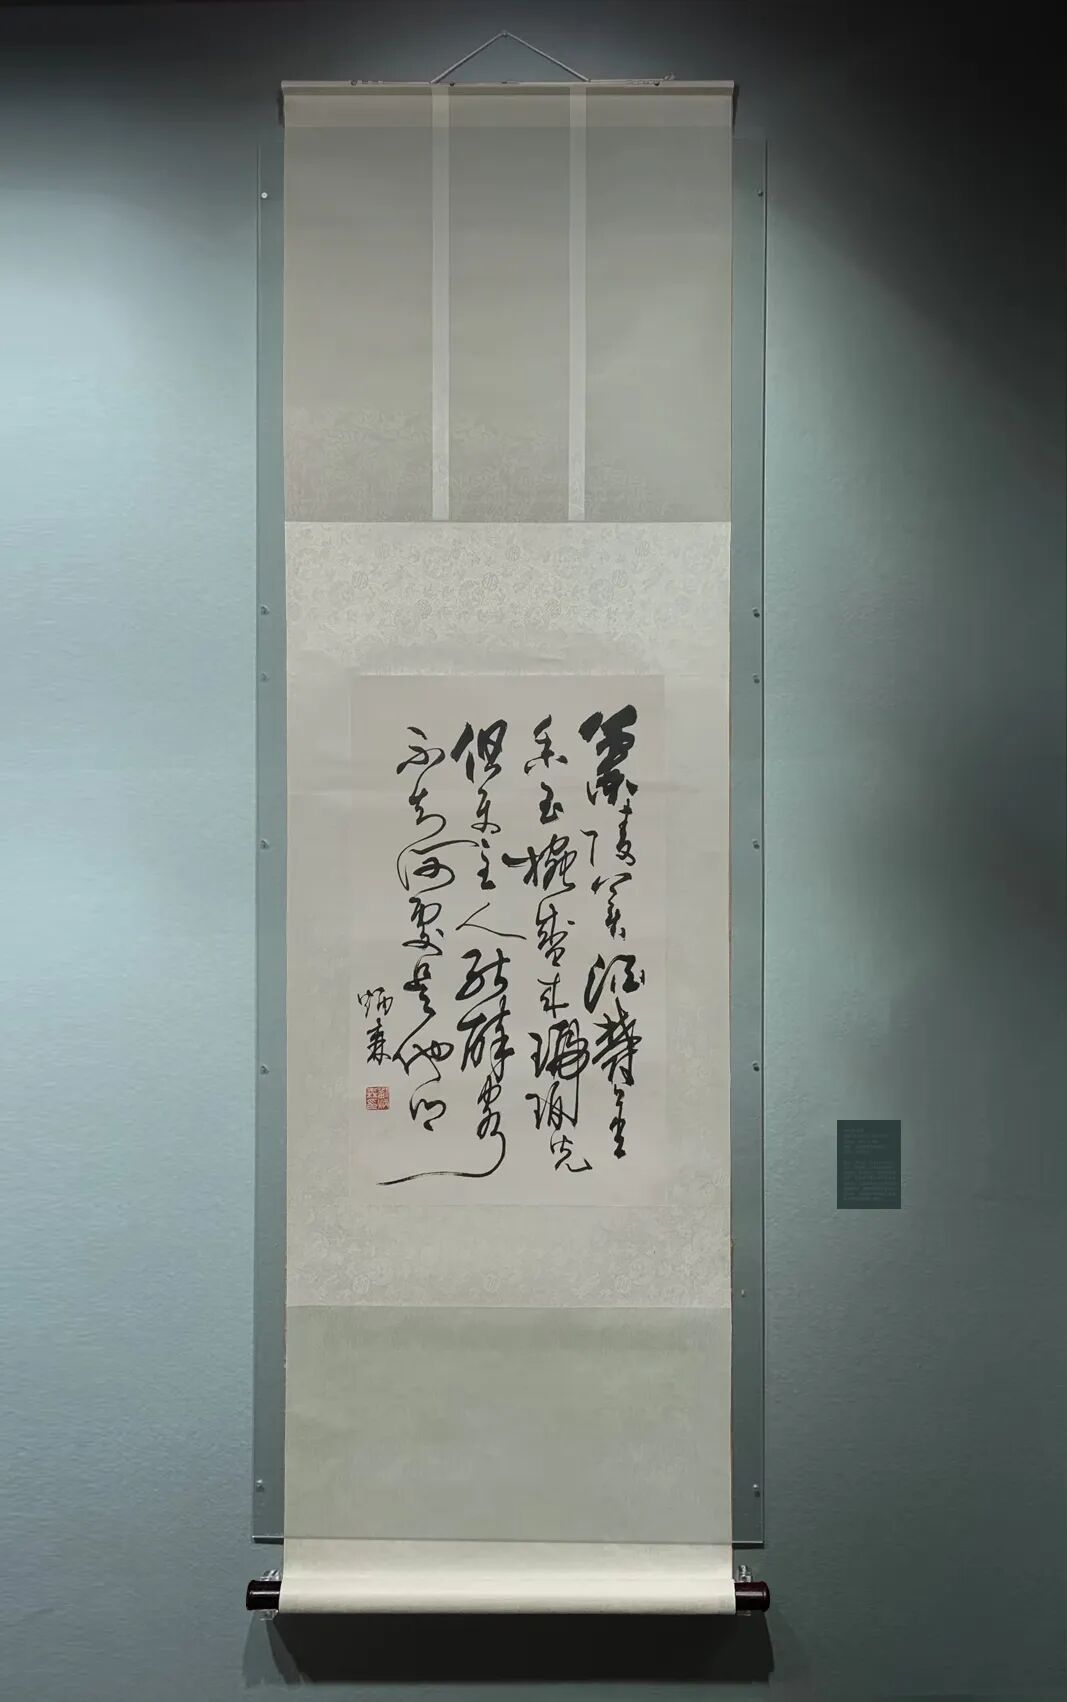 蘭陵美酒鬱金
香玉椀盛來琥珀光
但使主人能醉客
不知何處是他鄉
炳森